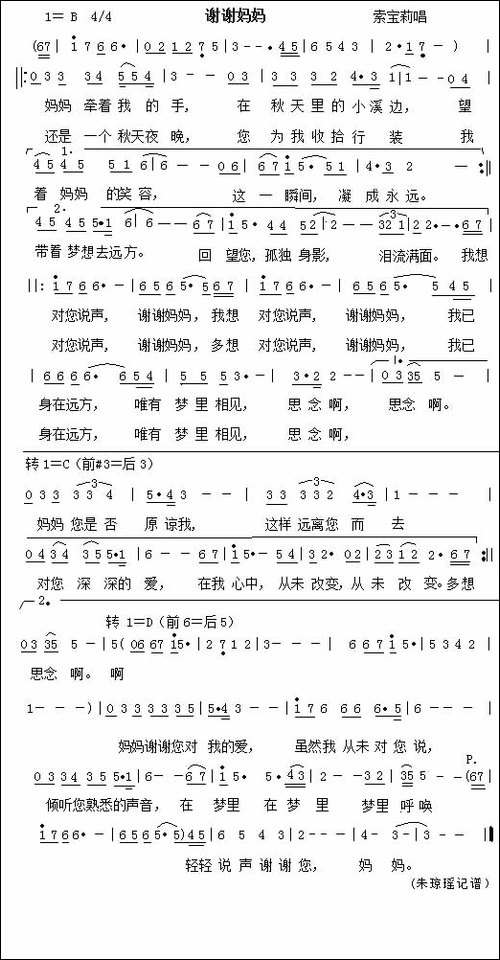 谢谢妈妈
1= B 4/4 索宝莉唱
(67| 1 7 6 6· | 0 2 1 2 7 5 | 3 - - · 4 5 | 6 5 4 3 | 2 · 1 7 - )
|: 0 3 3 3 4 5 5 4 | 3 - - 0 3 | 3 3 3 2 4·3 | 1 1 - - 0 4 |
妈妈 牵着 我 的 手, 在 秋 天 里 的 小 溪 边, 望
还是 一个 秋天夜 晚, 您 为 我 收 拾 行 装 我
1.
4 5 4 5 5 1 6 6 - - 0 6 | 6 7 1 5· 5 1 | 4·3 2 - :|
着 妈妈 的笑 容, 这 一 瞬间, 凝 成 永 远。
2.
4 5 4 5 5·1 6 6 - - 6 7 | 1 5· 4 4 5 2 2 - - 3 2 1 | 2 2 - · 6 7 |
带着 梦想去远方。 回 望您, 孤独 身影, 泪流满面。 我想
||: 1 7 6 6 · - | 6 5 6 5· 5 6 7 | 1 7 6 6 · - | 6 5 6 5· 5 4 5 |
对您说声, 谢谢妈妈, 我想 对您说声, 谢谢妈妈, 我已
对您说声, 谢谢妈妈, 多想 对您说声, 谢谢妈妈, 我已
1.
| 6 6 6 6· 6 5 4 | 5 5 5 3· - | 3·2 2 - - | 0 3 35 5 - |
身在远方, 唯有 梦 里 相见, 思 念 啊, 思念 啊。
身在远方, 唯有 梦 里 相见, 思 念 啊,
转 1=C (前#3=后 3)
0 3 3 3 3 4 | 5·4 3 - - | 3 3 3 3 2 4·3 | 1 - - - |
妈妈 您是 否 原 谅我, 这样 远离您 而 去
0 4 3 4 3 5 5·1 | 6 - - 6 7 | 1 5· 5 4 | 3 2· 0 2 | 2 3 1 2 2· 6 7 :|
对您 深 深的 爱, 在我 心中, 从未 改变, 从 未 改 变。多想
2.
转 1=D (前 6=后 5)
0 3 35 5 - | 5( 06 67 15· | 2 7 1 2 | 3 - - - | 6 6 7 1 5· | 5 3 4 2 |
思念 啊。 啊
1 - - - )| 0 3 3 3 3 3 5 | 5·4 3 - - | 1 7 6 6 6 6·5 | 6 - - - |
妈妈谢谢您对 我的爱, 虽然我 从未 对 您 说,
P.
0 3 3 4 3 5 5·1 | 6 - - 6 7 | 1 5· 5· 4 3 | 2 - -3 2 | 35 5 - -(67|
倾听您熟悉的声音, 在 梦里 在 梦 里 梦里 呼唤
1 7 6 6· - | 6 5 6 5· 5·)4 5 | 6 5 4 3 | 2 - - - | 4 - 3 - | 3 - - ||
轻轻 说 声 谢 谢 您, 妈 妈。
(朱琼瑶记谱)